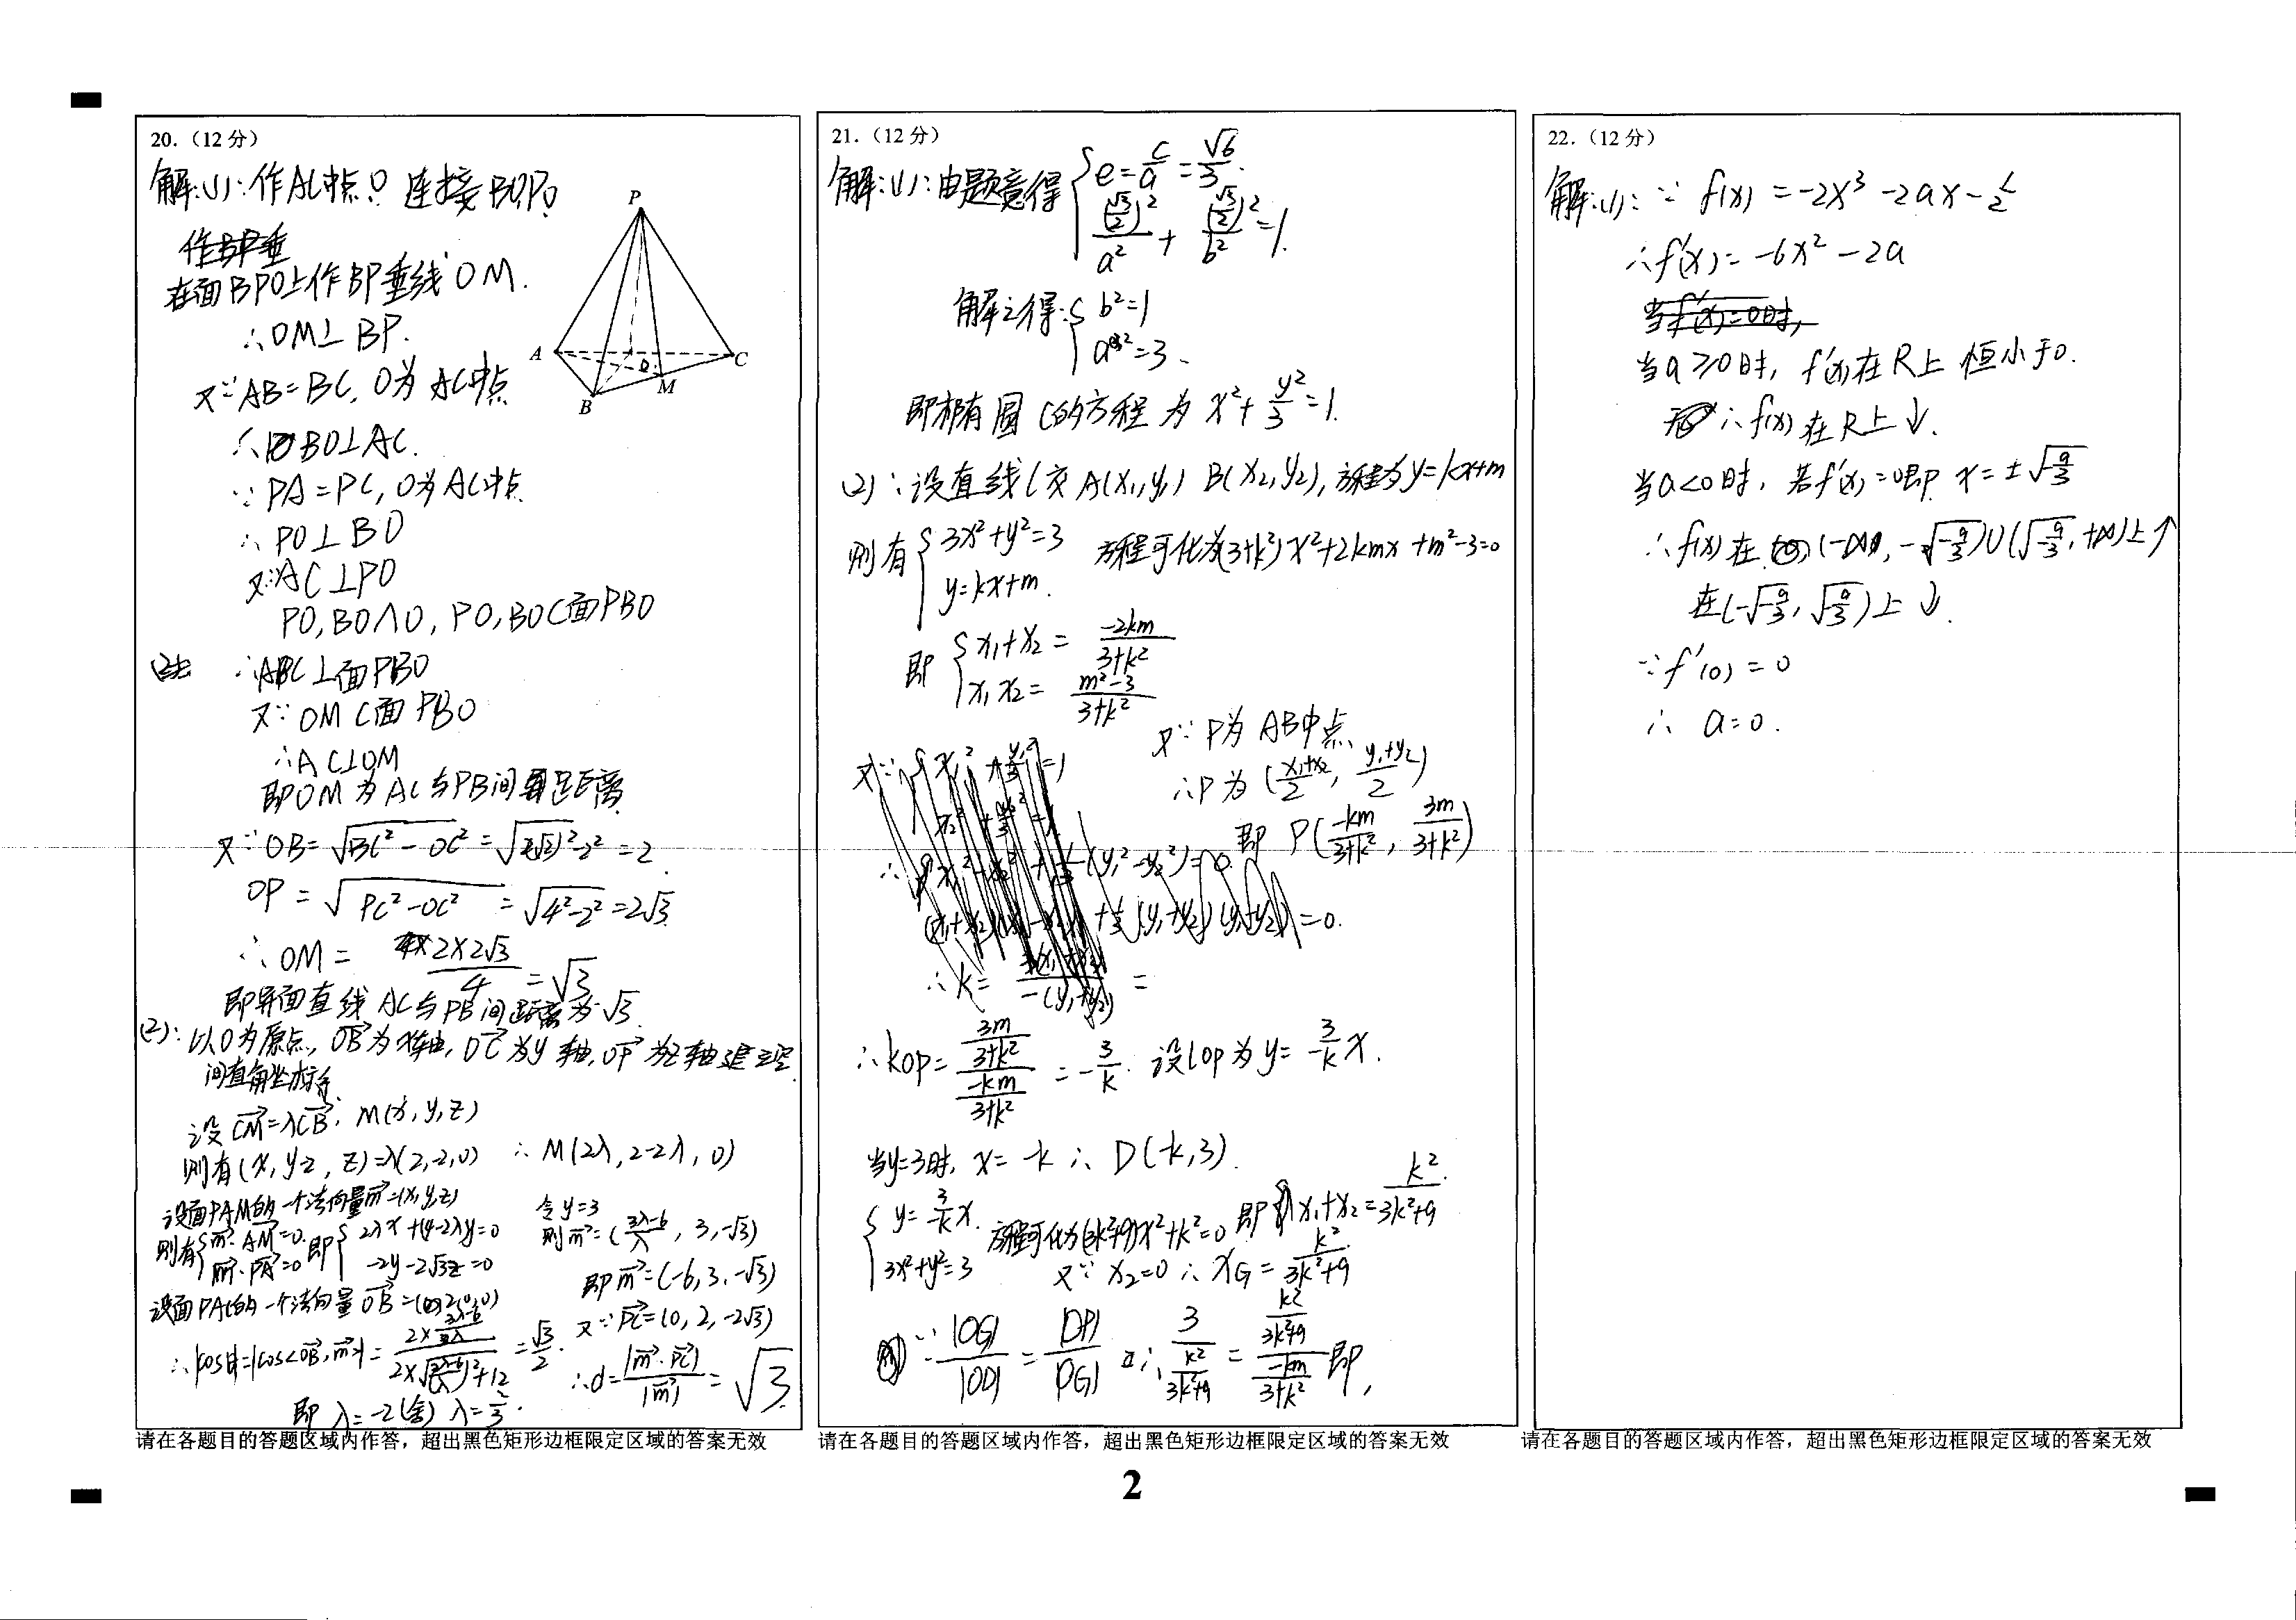 20.（12分）
解:(1):作AC中点O 连接BO,PO
在面BPO上作BP垂线OM.
∴OM⊥BP.
又∵AB=BC, O为AC中点
∴BO⊥AC.
∵PA=PC, O为AC中点
∴PO⊥BO
又∵AC⊥PO
PO,BO∩O, PO,BO⊂面PBO
∴AC⊥面PBO
又∵OM⊂面PBO
∴AC⊥OM
即OM为AC与PB间距离
又∵OB=√(BC²-OC²)=√((2√2)²-2²)=2
OP=√(PC²-OC²)=√(4²-2²)=2√3
∴OM=(2×2√3)/4=√3
即异面直线AC与PB间距离为√3
(2):以O为原点, OB→为x轴, OC→为y轴, OP→为z轴建立空
间直角坐标系
设CM→=λCB→, M(x,y,z)
则有(x,y-2,z)=λ(2,-2,0) ∴M(2λ,2-2λ,0)
设面PAM的一个法向量m→=(x,y,z)
则有{m→·AM→=0, m→·PA→=0 即{2λx+(4-2λ)y=0, -2y-2√3z=0
令y=3
则m→=((3λ-6)/λ,3,-√3)
设面PAC的一个法向量OB→=(2,0,0)
即m→=(-6,3,-√3)
又∵PC→=(0,2,-2√3)
∴|cosθ|=|cos<OB→,m→>|= =√3/2.
∴d=|m→·PC→|/|m→|=√3
即λ=-2(舍) λ=2/3.
P
A
O
C
B
M
请在各题目的答题区域内作答，超出黑色矩形边框限定区域的答案无效
21.（12分）
解:(1):由题意得{e=c/a=√6/3. (√3/2)²/a²+(√3/2)²/b²=1.
解之得:{b²=1 a²=3.
即椭圆C的方程为x²+y²/3=1.
(2):设直线l交A(x₁,y₁) B(x₂,y₂),方程为y=kx+m
则有{3x²+y²=3 y=kx+m. 方程可化为(3+k²)x²+2kmx+m²-3=0
即{x₁+x₂=-2km/(3+k²) x₁x₂=(m²-3)/(3+k²)
又∵P为AB中点
∴P为((x₁+x₂)/2,(y₁+y₂)/2)
即P(-km/(3+k²),3m/(3+k²))
∴kop=(3m/(3+k²))/(-km/(3+k²))=-3/k. 设lop为y=3/-k x.
当y=3时, x=-k ∴D(-k,3).
{y=3/-k x. 3x²+y²=3 方程可化为(3k²+9)x²+k²=0 即x₁+x₂=k²/(3k²+9).
又∵x₂=0 ∴xG=k²/(3k²+9)
∵|OG|/|OD|=|DP|/|PG| ∴3/(k²/(3k²+9))=(k²/(3k²+9))/(-km/(3+k²)) 即,
请在各题目的答题区域内作答，超出黑色矩形边框限定区域的答案无效
22.（12分）
解:(1):∵f(x)=-2x³-2ax-½
∴f'(x)=-6x²-2a
当f'(x)=0时,
当a≥0时, f'(x)在R上恒小于0.
∴f(x)在R上↓.
当a<0时, 若f'(x)=0即x=±√(-a/3)
∴f(x)在(-∞,-√(-a/3))∪(√(-a/3),+∞)上↑
在(-√(-a/3),√(a/3))上↓.
∵f'(0)=0
∴a=0.
请在各题目的答题区域内作答，超出黑色矩形边框限定区域的答案无效
2